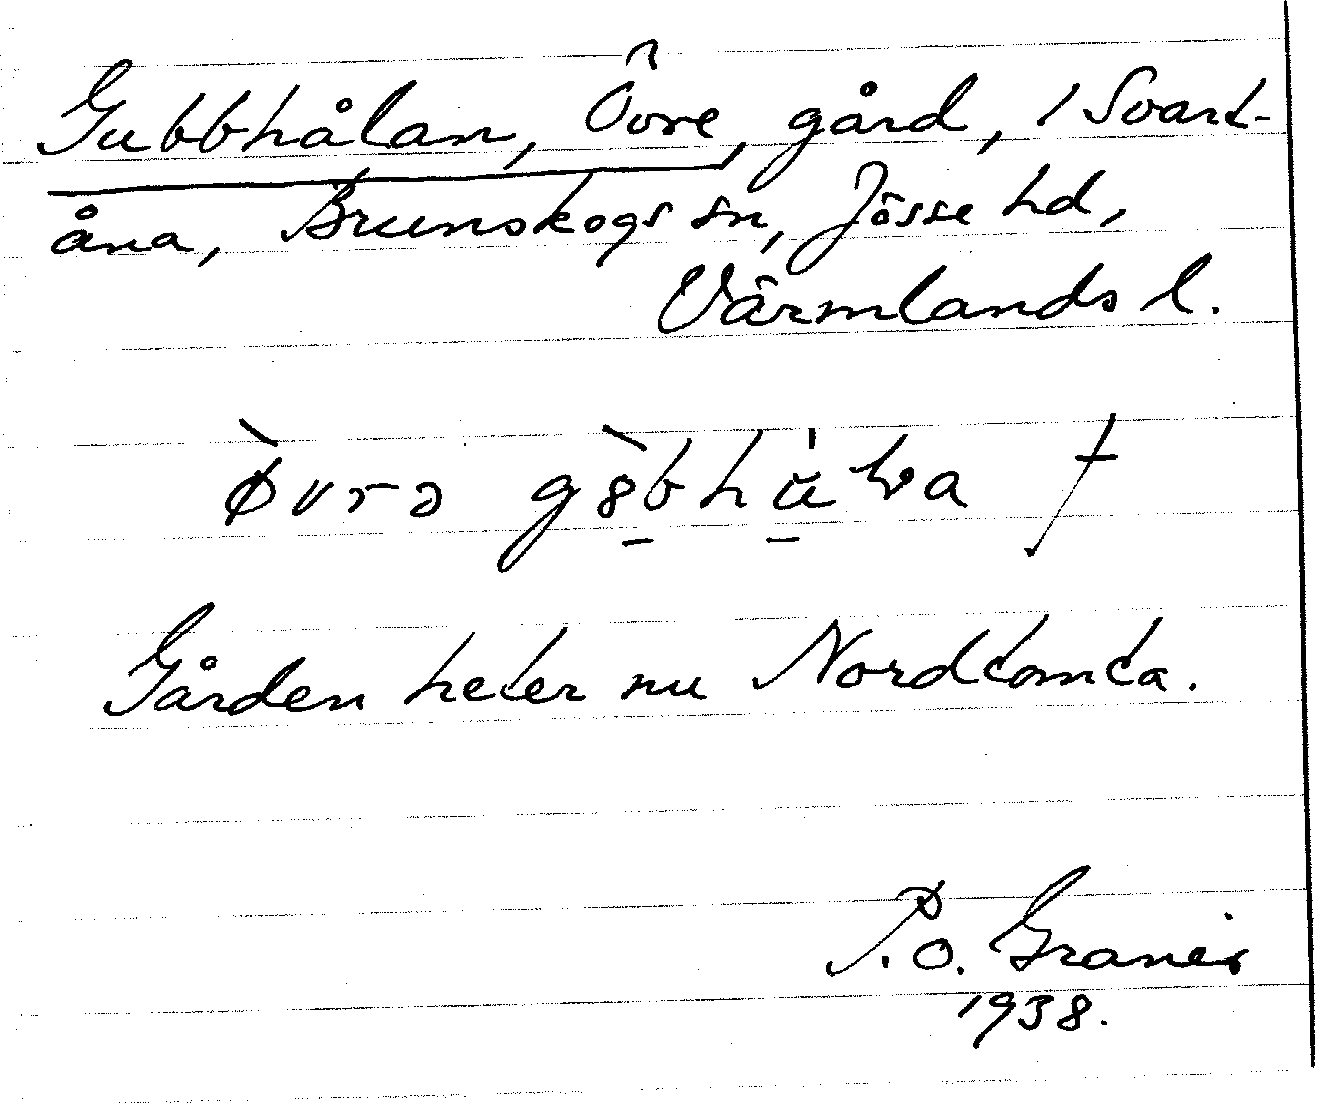 Gubbhålan, Övre, gård, i Svart-
åna, Brunskogs sn, Jösse hd,
Värmlands l.
Gården heter nu Nordtomta.
P.O. Granér
1938.